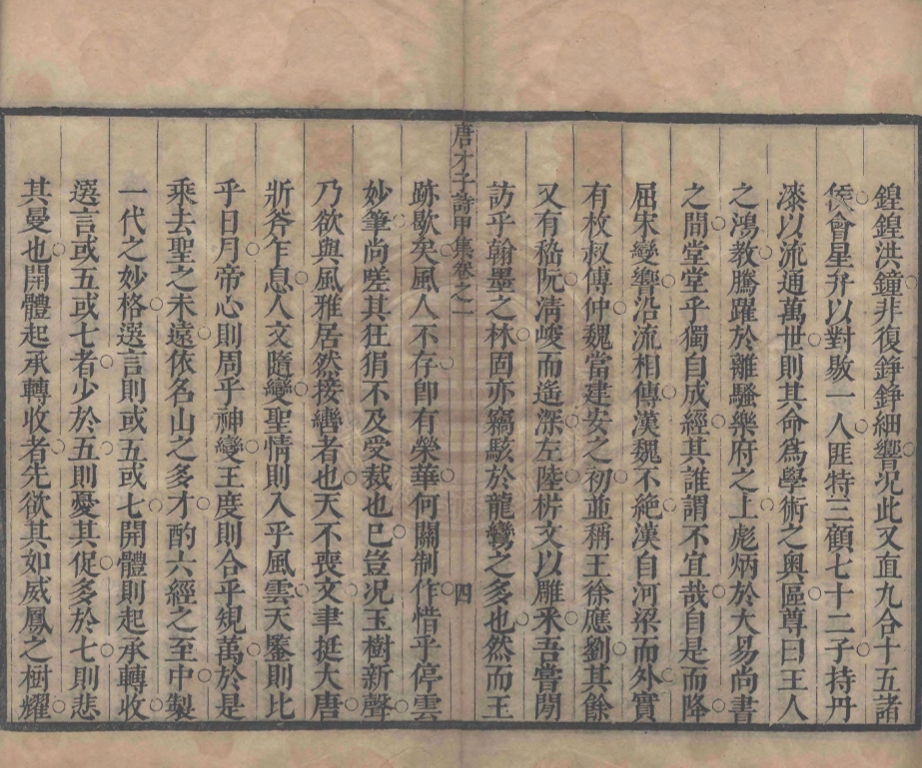 鍠鍠洪鐘非復錚錚細響況此又直九合十五諸
侯會星弁以對敭一人匪特三顧七十二子持丹
漆以流通萬世則其命爲學術之奧區尊曰王人
之鴻教騰躍於離騷樂府之上彪炳於大易尚書
之間堂堂乎獨自成經其誰謂不宜哉自是而降
屈宋變響沿流相傳漢魏不絶漢自河梁而外實
有枚叔傅仲魏當建安之初並稱王徐應劉其餘
又有嵇阮清峻而遙深左陸析文以雕釆吾嘗閒
訪乎翰墨之林固亦竊駭於龍鸞之多也然而王
唐才子詩甲集卷之一 四
跡歇矣風人不存卽有榮華何關制作惜乎停雲
妙筆尚嗟其狂狷不及受裁也已豈況玉樹新聲
乃欲與風雅居然接轡者也天不喪文聿挺大唐
斨斧乍息人文隨變聖情則入乎風雲天鑒則比
乎日月帝心則周乎神變王度則合乎規萬於是
乘去聖之未遠依名山之多才酌六經之至中製
一代之妙格選言則或五或七開體則起承轉收
選言或五或七者少於五則憂其促多於七則悲
其曼也開體起承轉收者先欲其如威鳳之樹耀